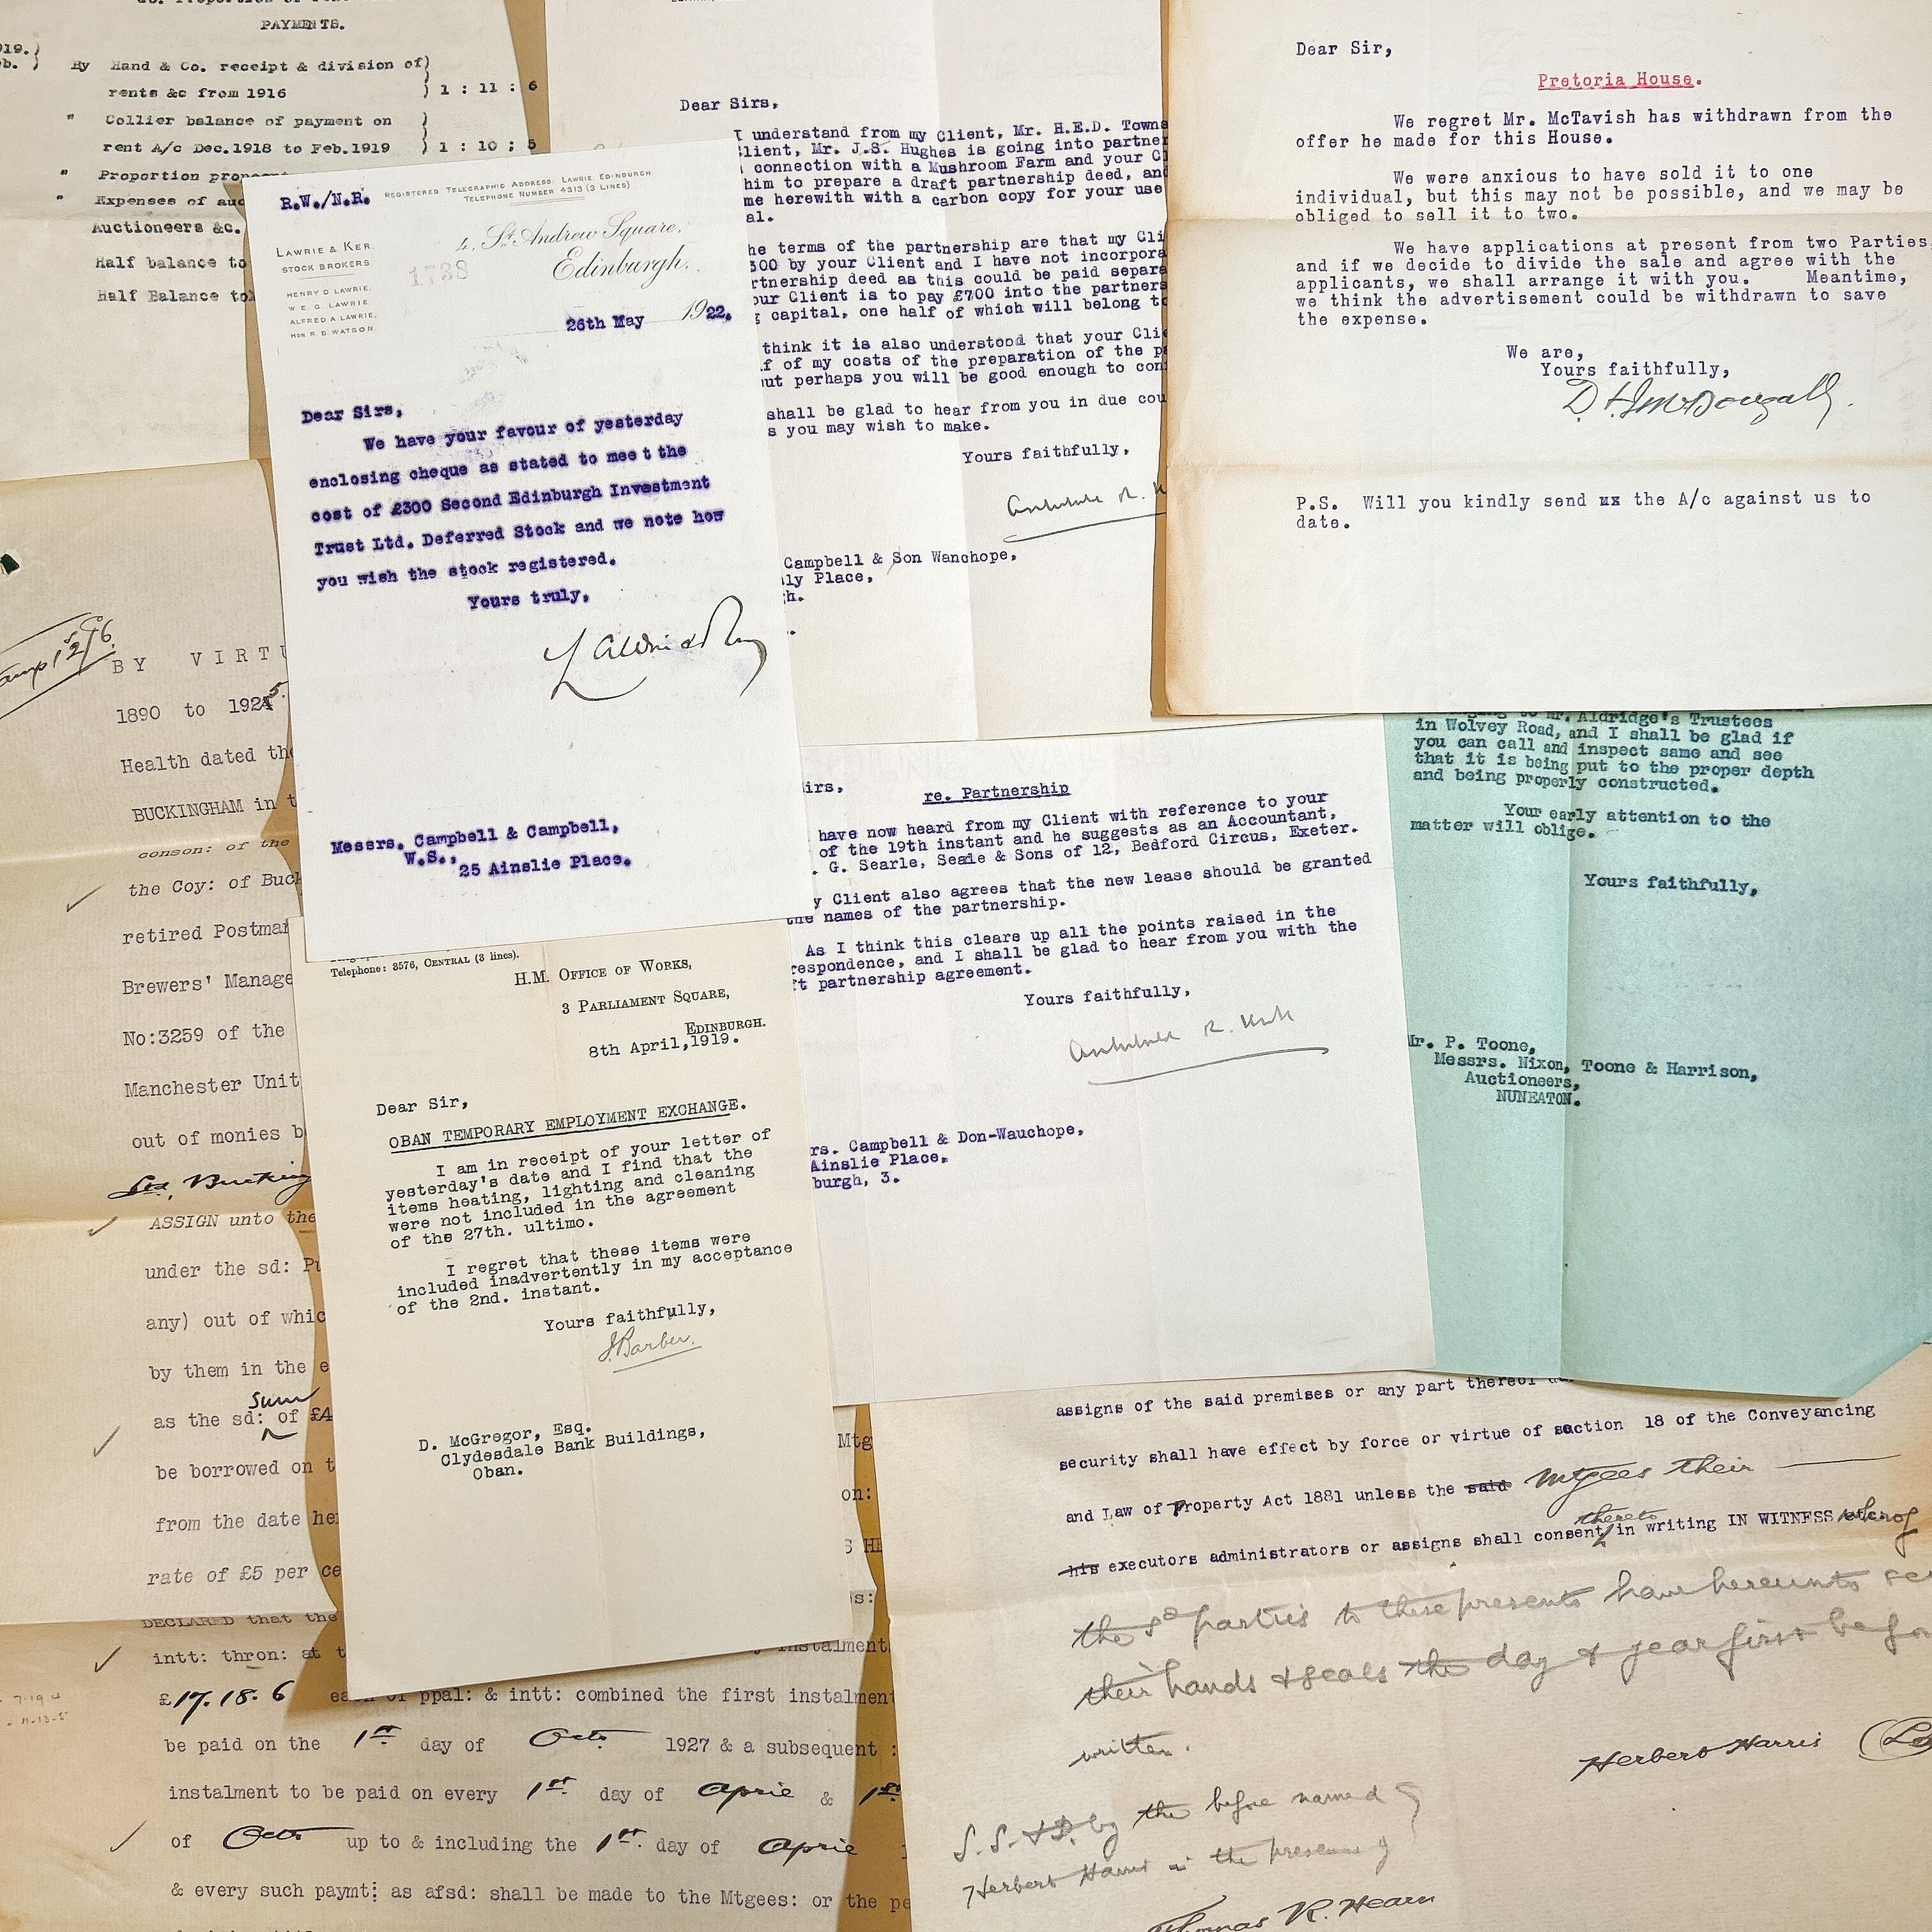 PAYMENTS.
By Hand & Co. receipt & division of
rents &c from 1916 1 : 11 : 6
" Collier balance of payment on
rent A/c Dec.1918 to Feb.1919 1 : 10 : 5
" Proportion
" Expenses of
Auctioneers &c.
Half balance to
Half Balance
Dear Sirs,
I understand from my Client, Mr. H.E.D.
Mr. J.S. Hughes is going into
connection with a Mushroom Farm and your
him to prepare a draft partnership deed, and
me herewith with a carbon copy for your use
terms of the partnership are that my
by your Client and I have not
deed as this could be paid
Client is to pay £700 into the
capital, one half of which will belong
think it is also understood that your
of my costs of the preparation of the
perhaps you will be good enough to
shall be glad to hear from you in due
you may wish to make.
Yours faithfully,
Campbell & Son Wanchope,
Place,
Dear Sir,
Pretoria House.
We regret Mr. McTavish has withdrawn from the
offer he made for this House.
We were anxious to have sold it to one
individual, but this may not be possible, and we may be
obliged to sell it to two.
We have applications at present from two Parties
and if we decide to divide the sale and agree with the
applicants, we shall arrange it with you. Meantime,
we think the advertisement could be withdrawn to save
the expense.
We are,
Yours faithfully,
P.S. Will you kindly send xx the A/c against us to
date.
R.W./N.R.
REGISTERED TELEGRAPHIC ADDRESS: LAWRIE, EDINBURGH
TELEPHONE NUMBER 4313 (3 LINES)
LAWRIE & KER.
STOCK BROKERS
HENRY D LAWRIE,
W E G LAWRIE,
ALFRED A LAWRIE,
HON. R B WATSON.
4, St. Andrew Square,
Edinburgh.
1738
26th May 1922.
Dear Sirs,
We have your favour of yesterday
enclosing cheque as stated to meet the
cost of £300 Second Edinburgh Investment
Trust Ltd. Deferred Stock and we note how
you wish the stock registered.
Yours truly,
Messrs. Campbell & Campbell,
W.S.,
25 Ainslie Place.
BY
1890 to 1924 5.
Health dated the
BUCKINGHAM in
conson: of the
the Coy: of
retired
Brewers'
No:3259 of the
Manchester
out of monies
ASSIGN unto the
under the sd:
any) out of
by them in the
sum
as the sd: of
be borrowed on
from the date
rate of £5 per
re. Partnership
have now heard from my Client with reference to your
of the 19th instant and he suggests as an Accountant,
G. Searle, Seale & Sons of 12, Bedford Circus, Exeter.
Client also agrees that the new lease should be granted
names of the partnership.
As I think this clears up all the points raised in the
and I shall be glad to hear from you with the
partnership agreement.
Yours faithfully,
Campbell & Don-Wauchope,
Ainslie Place,
3.
Aldridge's Trustees
in Wolvey Road, and I shall be glad if
you can call and inspect same and see
that it is being put to the proper depth
and being properly constructed.
Your early attention to the
matter will oblige.
Yours faithfully,
Mr. P. Toone,
Messrs. Nixon, Toone & Harrison,
Auctioneers,
NUNEATON.
Telephone: 3576, CENTRAL (3 lines).
H.M. OFFICE OF WORKS,
3 PARLIAMENT SQUARE,
EDINBURGH.
8th April,1919.
Dear Sir,
OBAN TEMPORARY EMPLOYMENT EXCHANGE.
I am in receipt of your letter of
yesterday's date and I find that the
items heating, lighting and cleaning
were not included in the agreement
of the 27th. ultimo.
I regret that these items were
included inadvertently in my acceptance
of the 2nd. instant.
Yours faithfully,
J. Barber.
D. McGregor, Esq.
Clydesdale Bank Buildings,
Oban.
DECLARED that the
intt: thron: at
£17.18.6 ppal: & intt: combined the first instalment
be paid on the 1st day of Octr 1927 & a subsequent :
instalment to be paid on every 1st day of April & 1st
of Octr up to & including the 1st day of April
& every such paymt: as afsd: shall be made to the Mtgees: or the
assigns of the said premises or any part thereof
security shall have effect by force or virtue of section 18 of the Conveyancing
and Law of Property Act 1881 unless the said Mtgees their
thereto
his executors administrators or assigns shall consent in writing IN WITNESS whereof
the sd parties to these presents have hereunto set
their hands & seals the day & year first before
written.
Herbert Harris
S. S. & D. by the before named
Herbert Harris in the presence of
Thomas R. Hearn